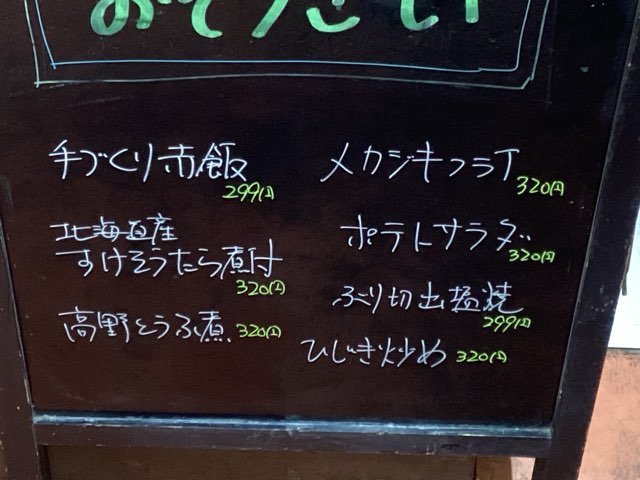 おそうざい
手づくり赤飯
299円
北海道産
すけそうたら煮付
320円
高野とうふ煮 320円
メカジキフライ
320円
ポテトサラダ
320円
ぶり切出塩焼
299円
ひじき炒め 320円